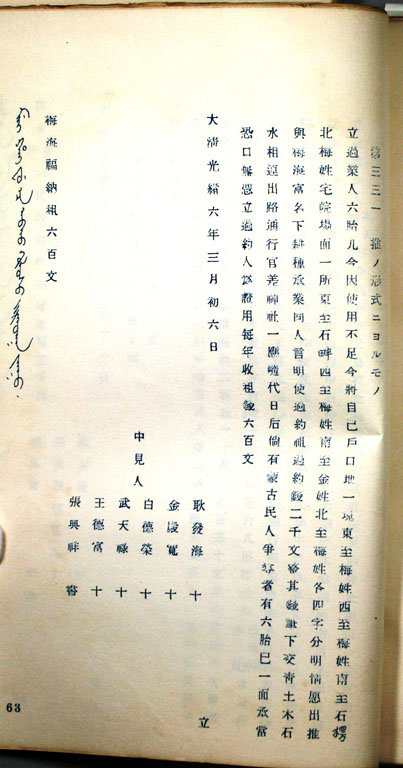 第三三一　推ノ形式ニヨルモノ
立過業人六胎儿今因使用不足今將自己戶口地一塊東至梅姓西至梅姓南至石
北梅姓宅院場面一所東至石畔西至梅姓南至金姓北至梅姓各四字分明情愿出推
與梅海富名下耕種承業同人言明使過約租過約錢二千文整其錢筆下交淸土木石
水相連出路通行官差神社一應隨代日后倘有蒙古民人爭奪者有六胎巳一面承當
恐口無憑立過約人爲證用每年收租錢六百文
大淸光緖六年三月初六日
立
中見人
耿發海　十
金　寬　十
白德榮　十
武天祿　十
王德富　十
張興祥　書
梅海福納租六百文
63